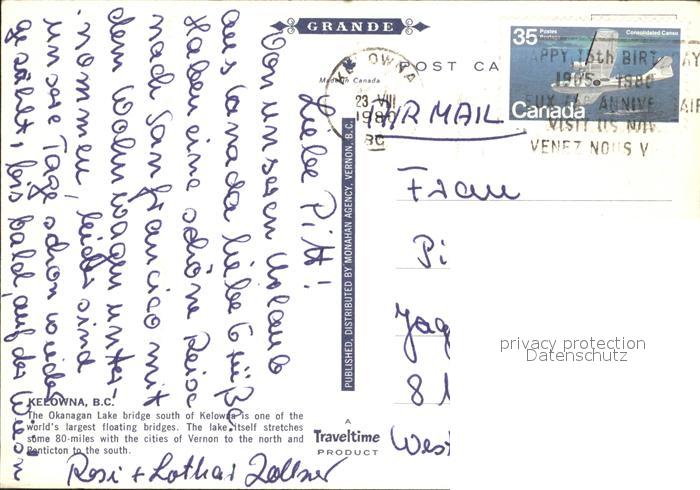 GRANDE
POST CA
Made in Canada
35 Postes Postage
Consolidated Canso
Canada
KELOWNA
23 VIII
1980
BC
APPY 75th BIRT AY
1905 1980
EUX 75e ANNIVE AIR
VISIT US N
VENEZ NOUS V
AIR MAIL
Liebe Pitt!
Von unserem Urlaub
aus Canada liebe Grüße.
Haben eine schöne Reise
nach San Francisco mit
dem Wohnwagen unter-
nommen, leider sind
unsere Tage schon wieder
gezählt, bis bald auf der Wies'n
Rosi + Lothar Zollner
Frau
Pi
Jag
8
West
PUBLISHED, DISTRIBUTED BY MONAHAN AGENCY, VERNON, B.C.
KELOWNA, B.C.
The Okanagan Lake bridge south of Kelowna is one of the
world's largest floating bridges. The lake itself stretches
some 80-miles with the cities of Vernon to the north and
Penticton to the south.
A
Traveltime
PRODUCT
privacy protection
Datenschutz